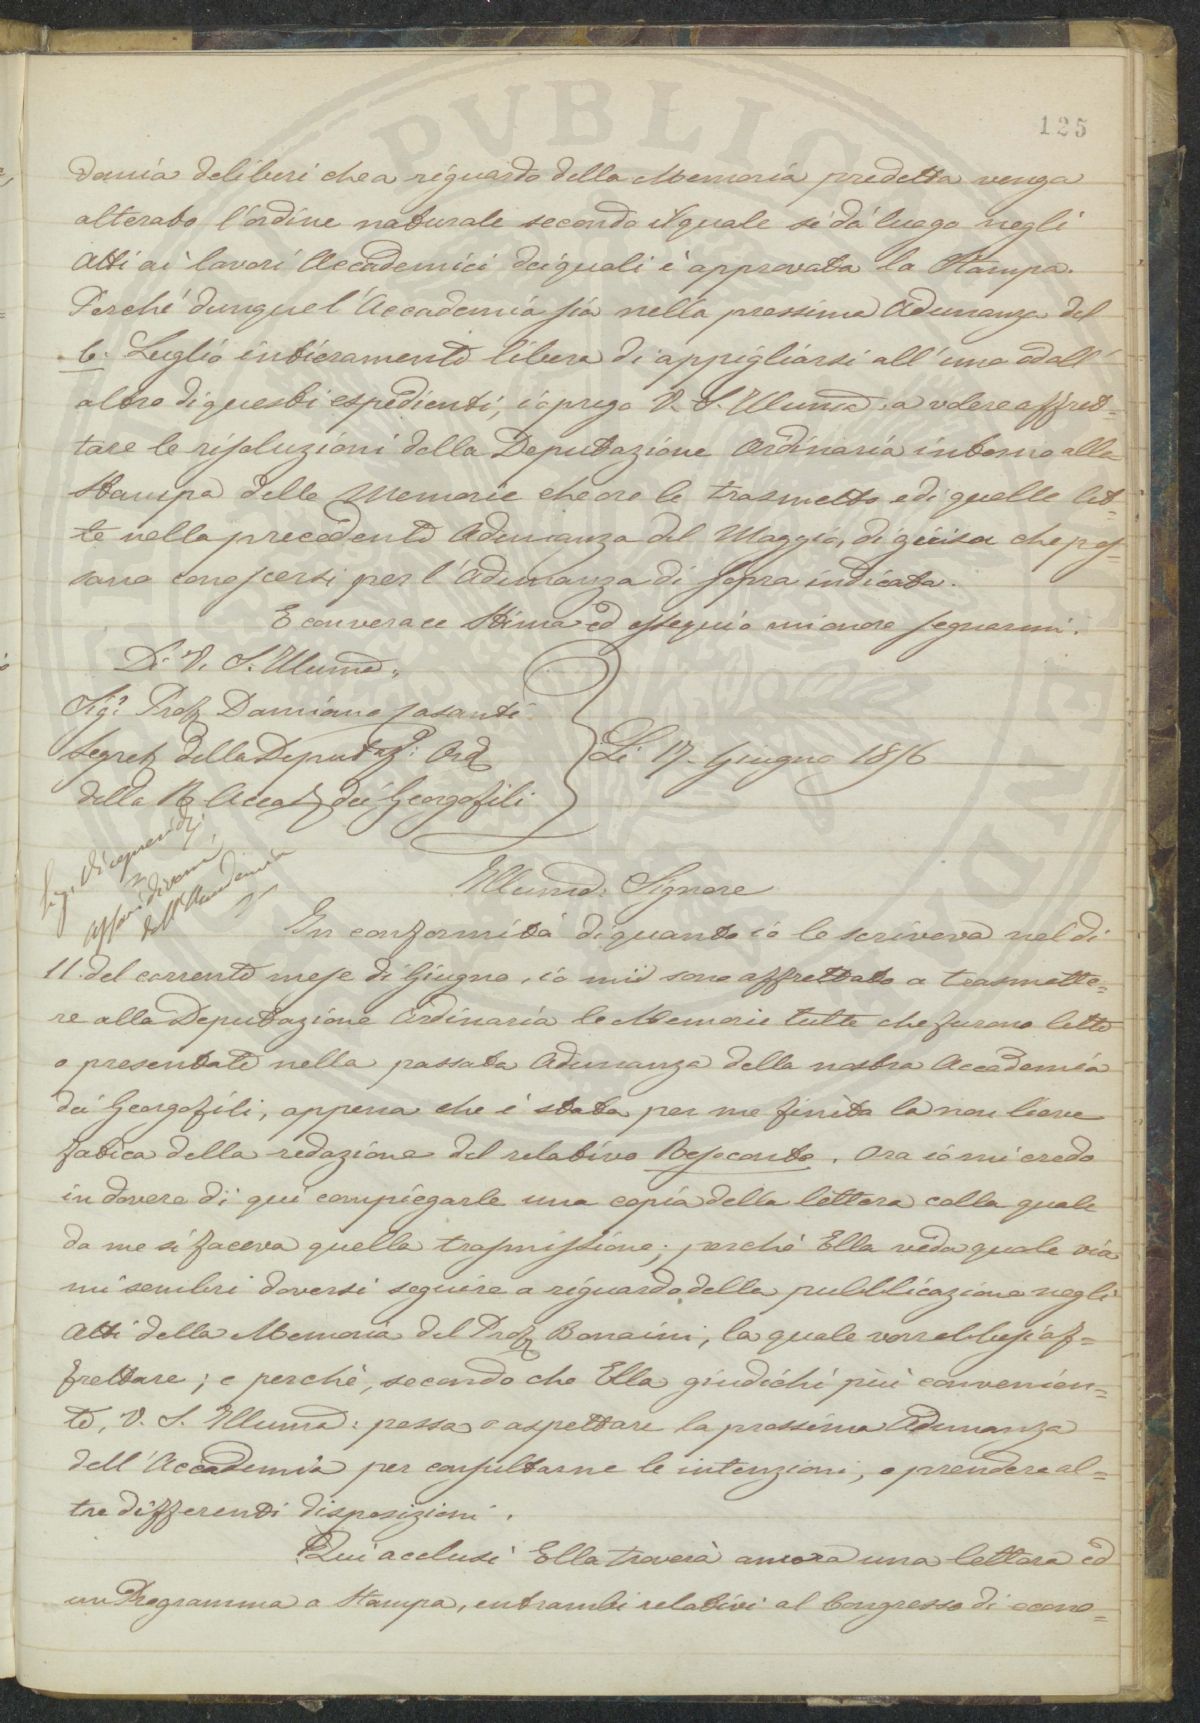 125
demia deliberi che a riguardo della Memoria predetta venga
alterato l'ordine naturale secondo il quale si dà luogo negli
Atti ai lavori Accademici dei quali è approvata la Stampa.
Perché dunque l'Accademia sia nella prossima Adunanza del
6. Luglio intieramente libera di appigliarsi all'uno od all'
altro di questi espedienti, io prego V. S. Illuma. a volere affret=
tare le risoluzioni della Deputazione Ordinaria intorno alla
Stampa delle Memorie che ora le trasmetto, e di quelle let=
te nella precedente Adunanza del Maggio, di guisa che pos=
sano conoscersi per l'Adunanza di sopra indicata.
E con verace Stima ed ossequio mi onoro segnarmi.
Di V. S. Illuma.
Sigr. Prof. Damiano Casanti
Segret. della Deputaze: Ord.
della R. Accad. dei Georgofili
Li 17. Giugno 1856
Affari diversi
dell'Accademia
Illumo: Signore
In conformità di quanto io le scriveva nel dì
11. del corrente mese di Giugno, io mi sono affrettato a trasmette=
re alla Deputazione Ordinaria le Memorie tutte che furono lette
o presentate nella passata Adunanza della nostra Accademia
dei Georgofili, appena che è stata per me finita la non lieve
fatica della redazione del relativo Resoconto. Ora io mi credo
in dovere di qui compiegarle una copia della lettera colla quale
da me si faceva quella trasmissione; perchè Ella veda quale via
mi sembri doversi seguire a riguardo della pubblicazione negli
Atti della Memoria del Prof. Bonaini, la quale vorrebbesi af=
frettare; e perchè, secondo che Ella giudichi più convenien=
te, V. S. Illuma: possa o aspettare la prossima Adunanza
dell'Accademia per consultarne le intenzioni, o prendere al=
tre differenti disposizioni.
Qui acclusi Ella troverà ancora una lettera ed
un Programma a Stampa, entrambi relativi al Congresso di econo=